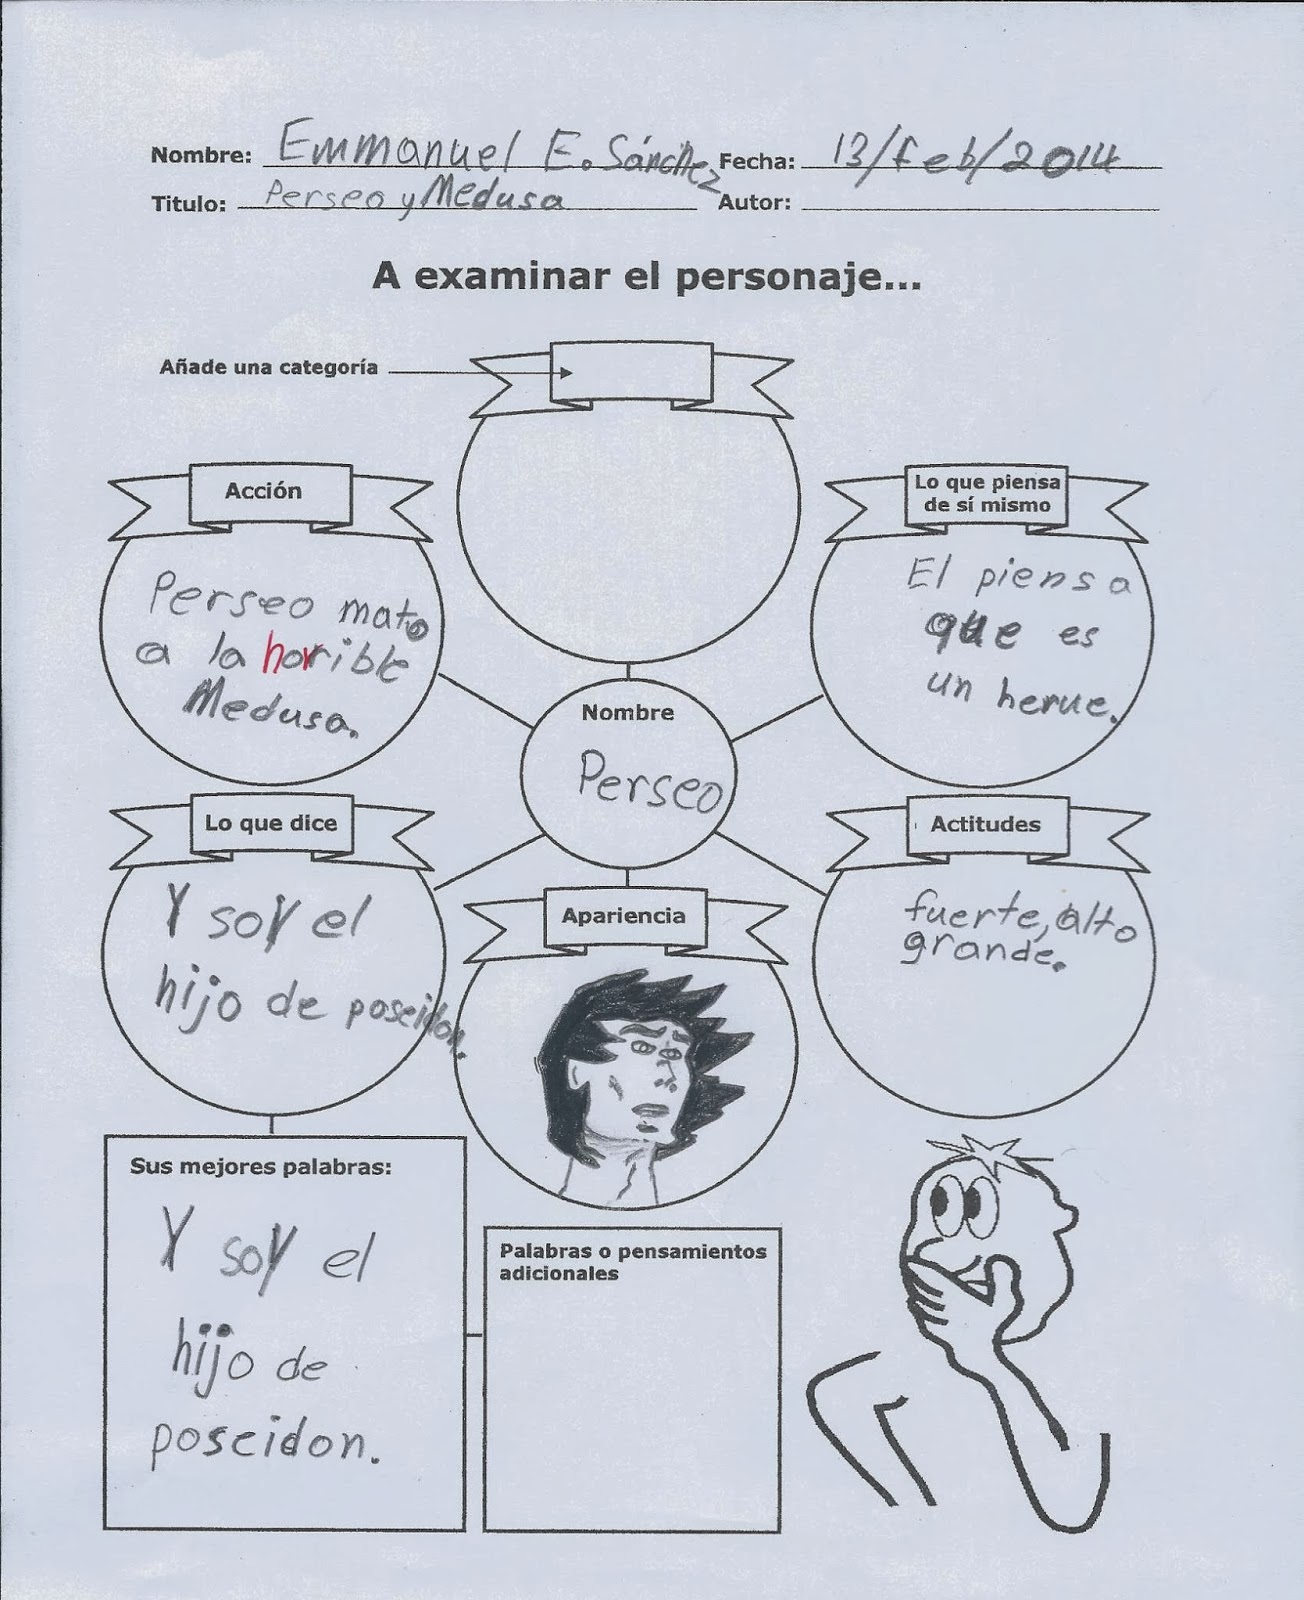 Nombre: Emmanuel E. Sánchez Fecha: 13/feb/2014
Titulo: Perseo y Medusa Autor:
A examinar el personaje...
Añade una categoría
Acción
Perseo mato
a la horrible
Medusa.
Lo que piensa
de sí mismo
El piensa
que es
un herue.
Nombre
Perseo
Lo que dice
Y soy el
hijo de poseidon.
Apariencia
Actitudes
fuerte, alto
grande.
Sus mejores palabras:
Y soy el
hijo de
poseidon.
Palabras o pensamientos
adicionales